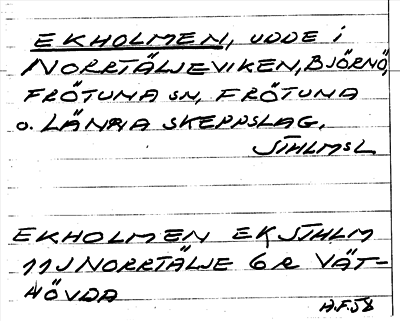 EKHOLMEN, UDDE i
NORRTÄLJEVIKEN, BJÖRNÖ,
FRÖTUNA SN, FRÖTUNA
o. LÄNNA SKEPPSLAG,
STHLMSL
EKHOLMEN EK STHLM
11J NORRTÄLJE 6 R VÄT-
HÖVDA
A.F.58